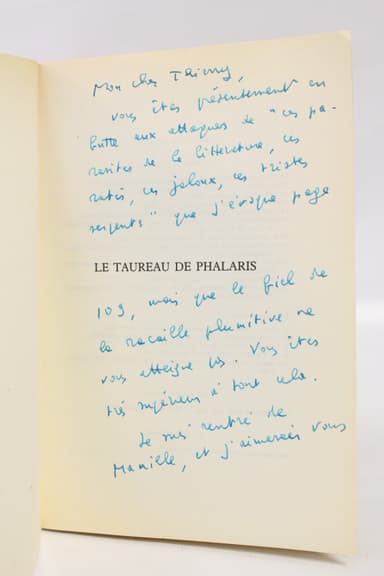 Mon cher Thierry,
vous êtes présentement en
butte aux attaques de "ces pa-
rasites de la littérature, ces
ratés, ces jaloux, ces tristes
serpents" que j'évoque page
LE TAUREAU DE PHALARIS
109, mais que le fiel de
la racaille plumitive ne
vous atteigne pas. Vous êtes
très supérieur à tout cela.
Je suis rentré de
Manille, et j'aimerais vous